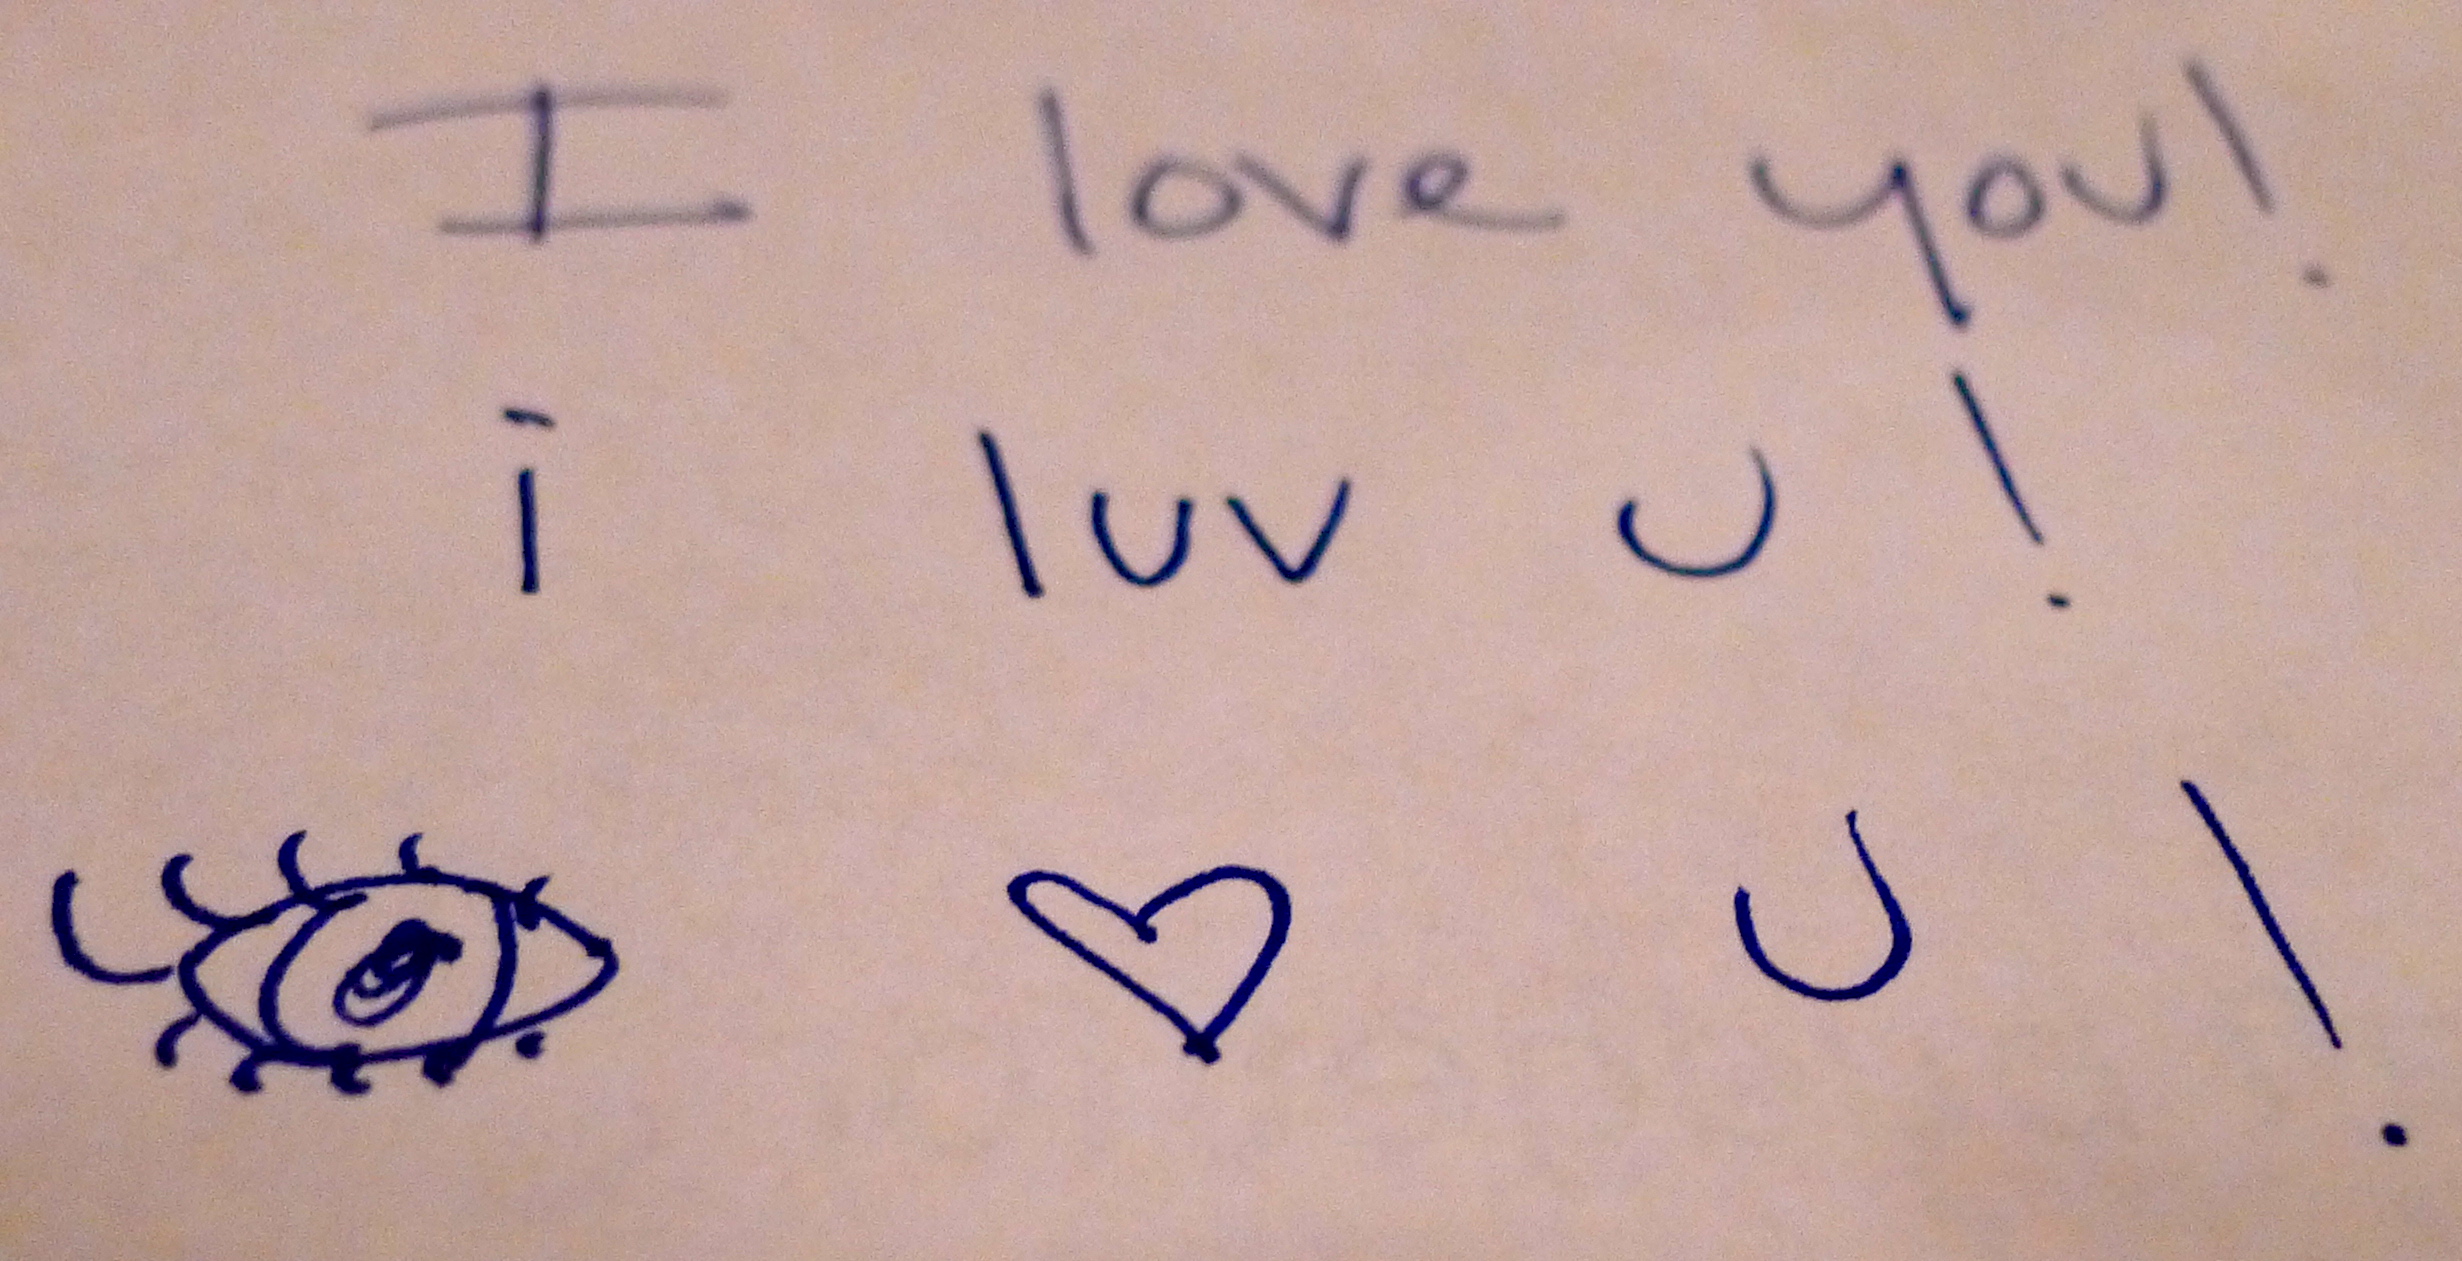 I love you!
i luv u!
👁 ♡ U!